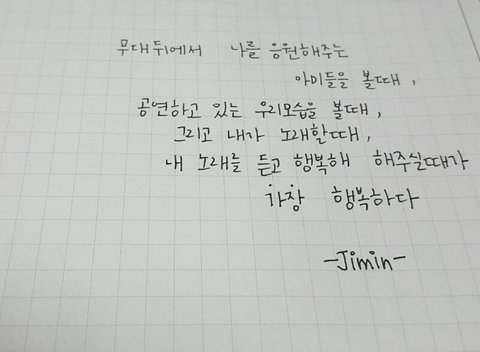 무대뒤에서 나를 응원해주는
아미들을 볼때,
공연하고 있는 우리모습을 볼때,
그리고 내가 노래할때,
내 노래를 듣고 행복해 해주실때가
가장 행복하다
-Jimin-